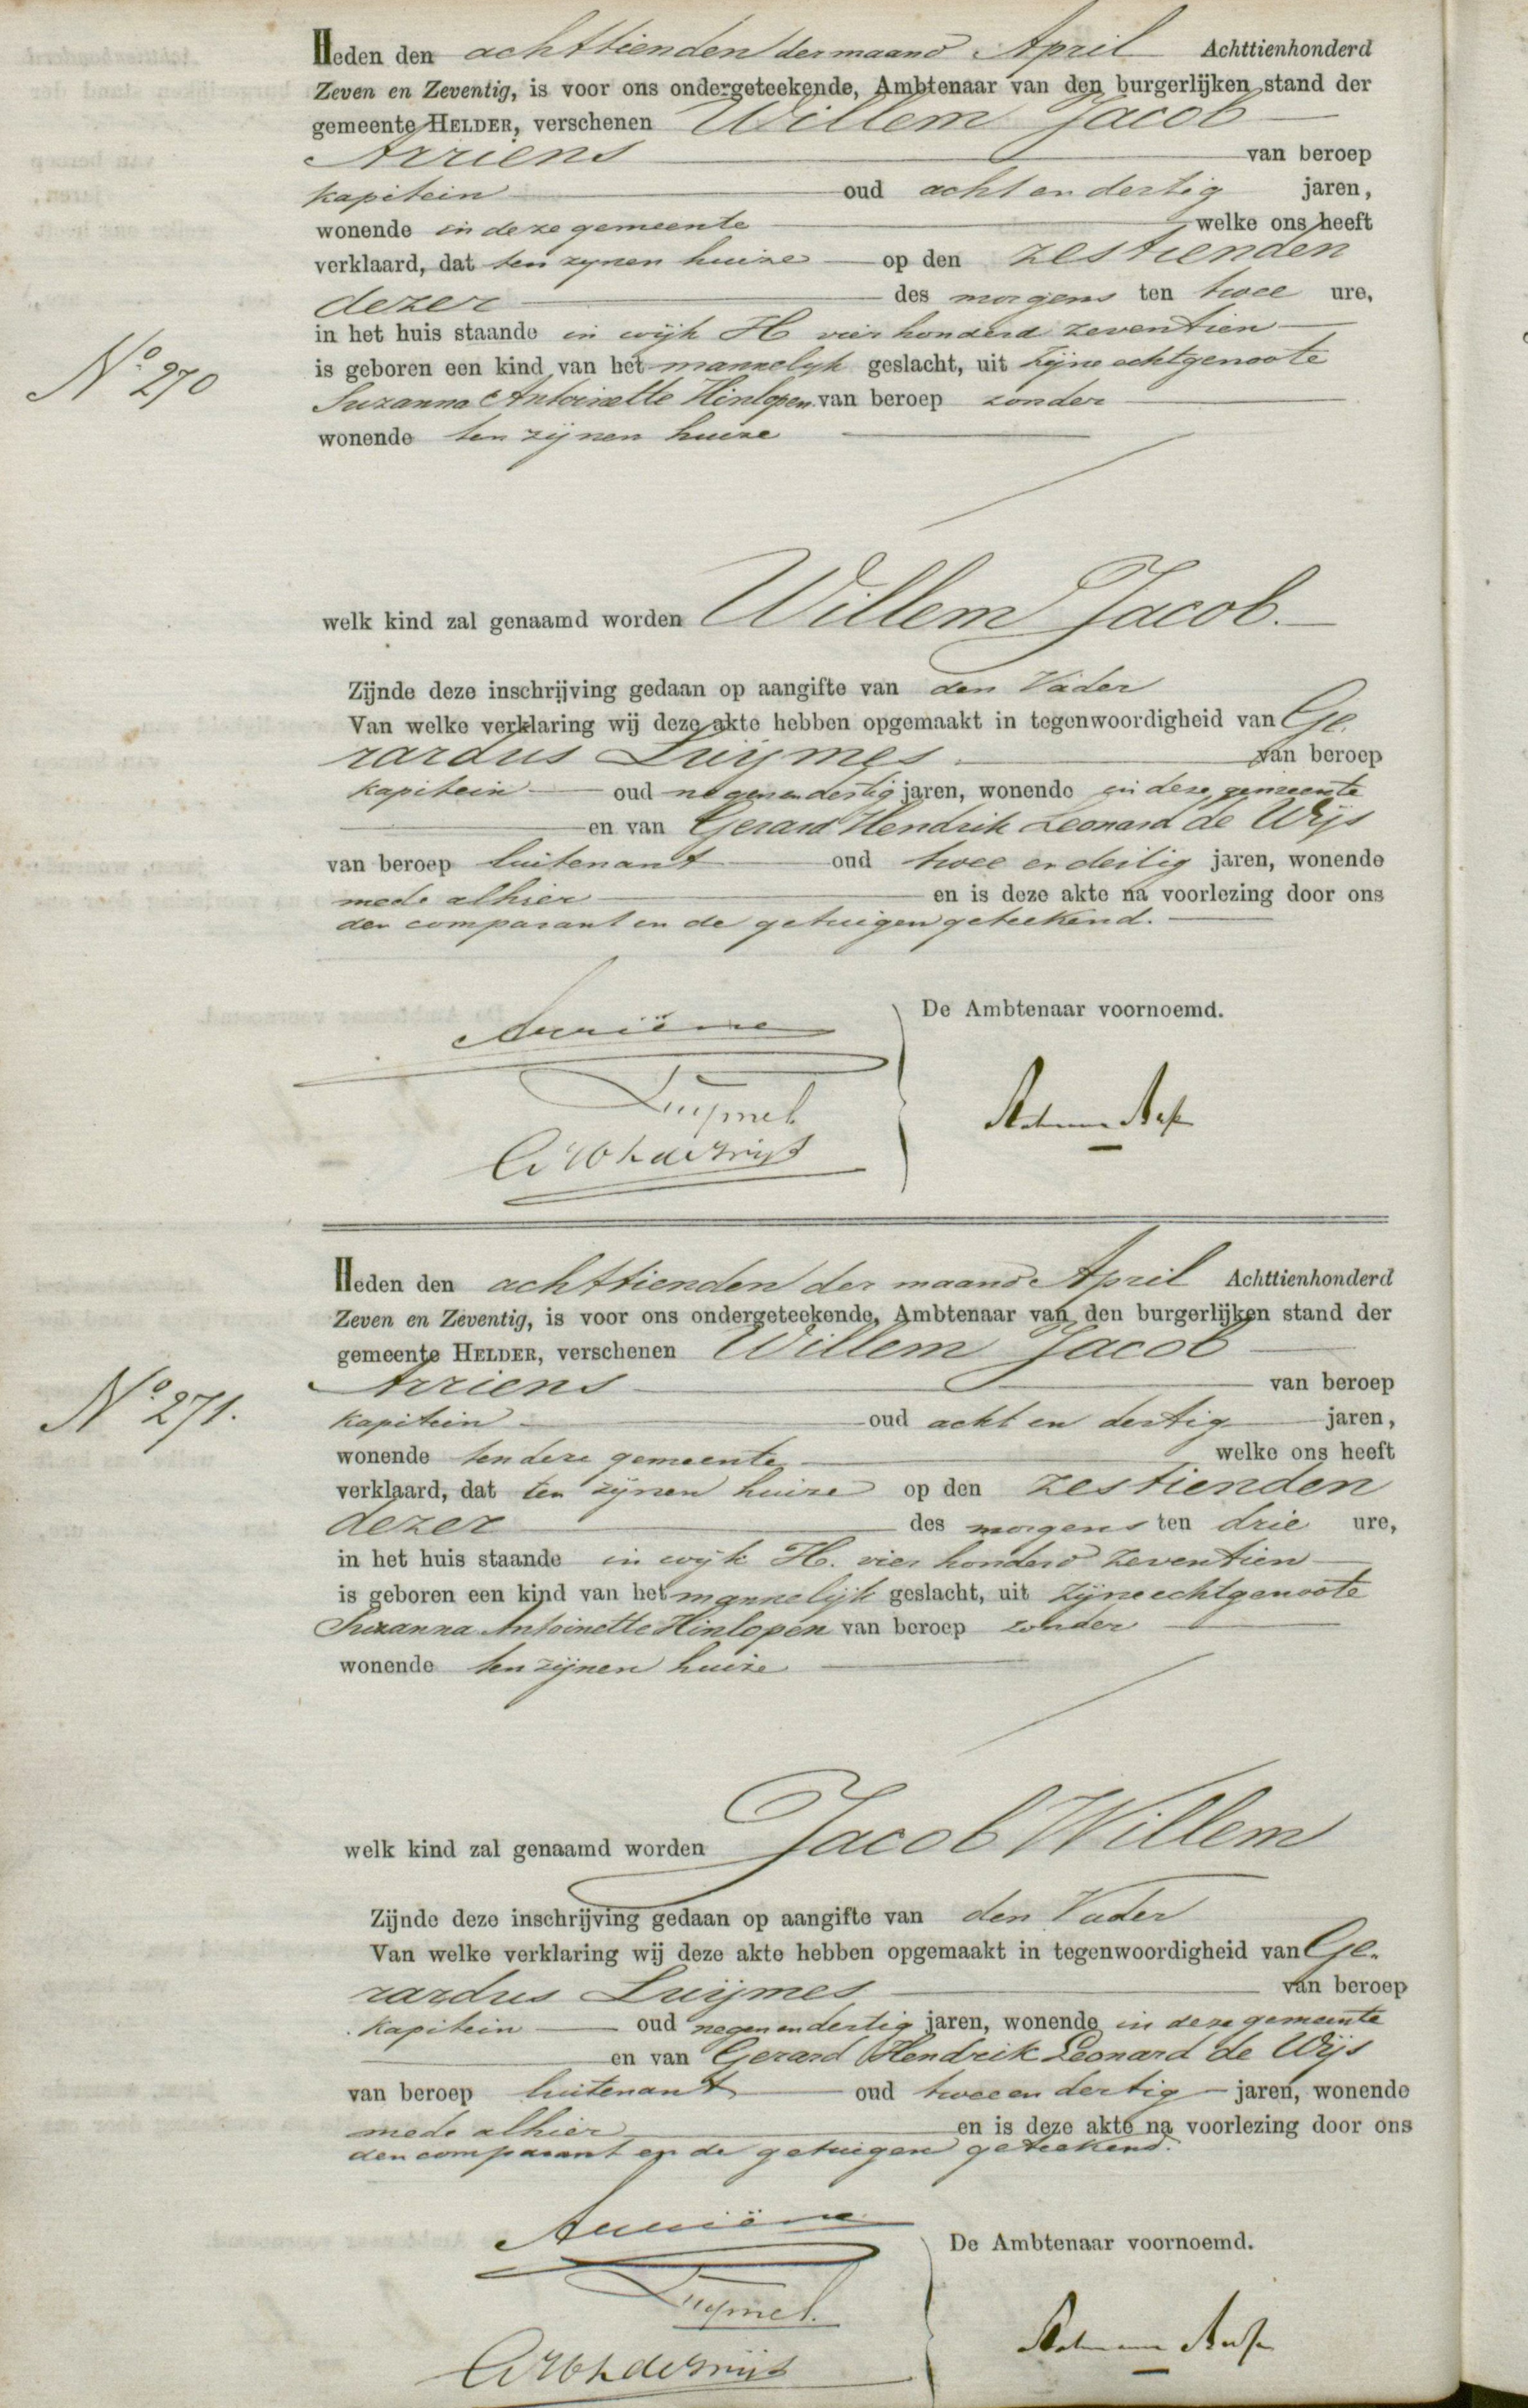 Heden den achttienden der maand April Achttienhonderd
Zeven en Zeventig, is voor ons ondergeteekende, Ambtenaar van den burgerlijken stand der
gemeente HELDER, verschenen Willem Jacob
Arriens van beroep
kapitein oud acht en dertig jaren,
wonende in deze gemeente welke ons heeft
verklaard, dat ten zynen huize op den zestienden
dezer des morgens ten twee ure,
in het huis staande in wijk H vier honderd zeventien
is geboren een kind van het mannelyk geslacht, uit zijne echtgenoote
No. 270
Suzanna Antoinette Hinlopen van beroep zonder
wonende ten zijnen huize
welk kind zal genaamd worden Willem Jacob.
Zijnde deze inschrijving gedaan op aangifte van den Vader
Van welke verklaring wij deze akte hebben opgemaakt in tegenwoordigheid van Ge.
rardus Luijmes van beroep
kapitein oud negen en dertig jaren, wonende in deze gemeente
en van Gerard Hendrik Leonard de Wijs
van beroep luitenant oud twee en dertig jaren, wonende
mede alhier en is deze akte na voorlezing door ons
den comparant en de getuigen geteekend.
De Ambtenaar voornoemd.
Arriëns
Luijmes
GHLdeWijs
Heden den achttienden der maand April Achttienhonderd
Zeven en Zeventig, is voor ons ondergeteekende, Ambtenaar van den burgerlijken stand der
gemeente HELDER, verschenen Willem Jacob
Arriens van beroep
No. 271.
kapitein oud acht en dertig jaren,
wonende ten deze gemeente welke ons heeft
verklaard, dat ten zijnen huize op den zestienden
dezer des morgens ten drie ure,
in het huis staande in wijk H. vier honderd zeventien
is geboren een kind van het mannelijk geslacht, uit zijne echtgenoote
Suzanna Antoinette Hinlopen van beroep zonder
wonende ten zijnen huize
welk kind zal genaamd worden Jacob Willem
Zijnde deze inschrijving gedaan op aangifte van den Vader
Van welke verklaring wij deze akte hebben opgemaakt in tegenwoordigheid van Ge.
rardus Luijmes van beroep
kapitein oud negen en dertig jaren, wonende in deze gemeente
en van Gerard Hendrik Leonard de Wijs
van beroep luitenant oud twee en dertig jaren, wonende
mede alhier en is deze akte na voorlezing door ons
den comparant en de getuigen geteekend.
De Ambtenaar voornoemd.
Arriëns
Luijmes
GHLdeWijs